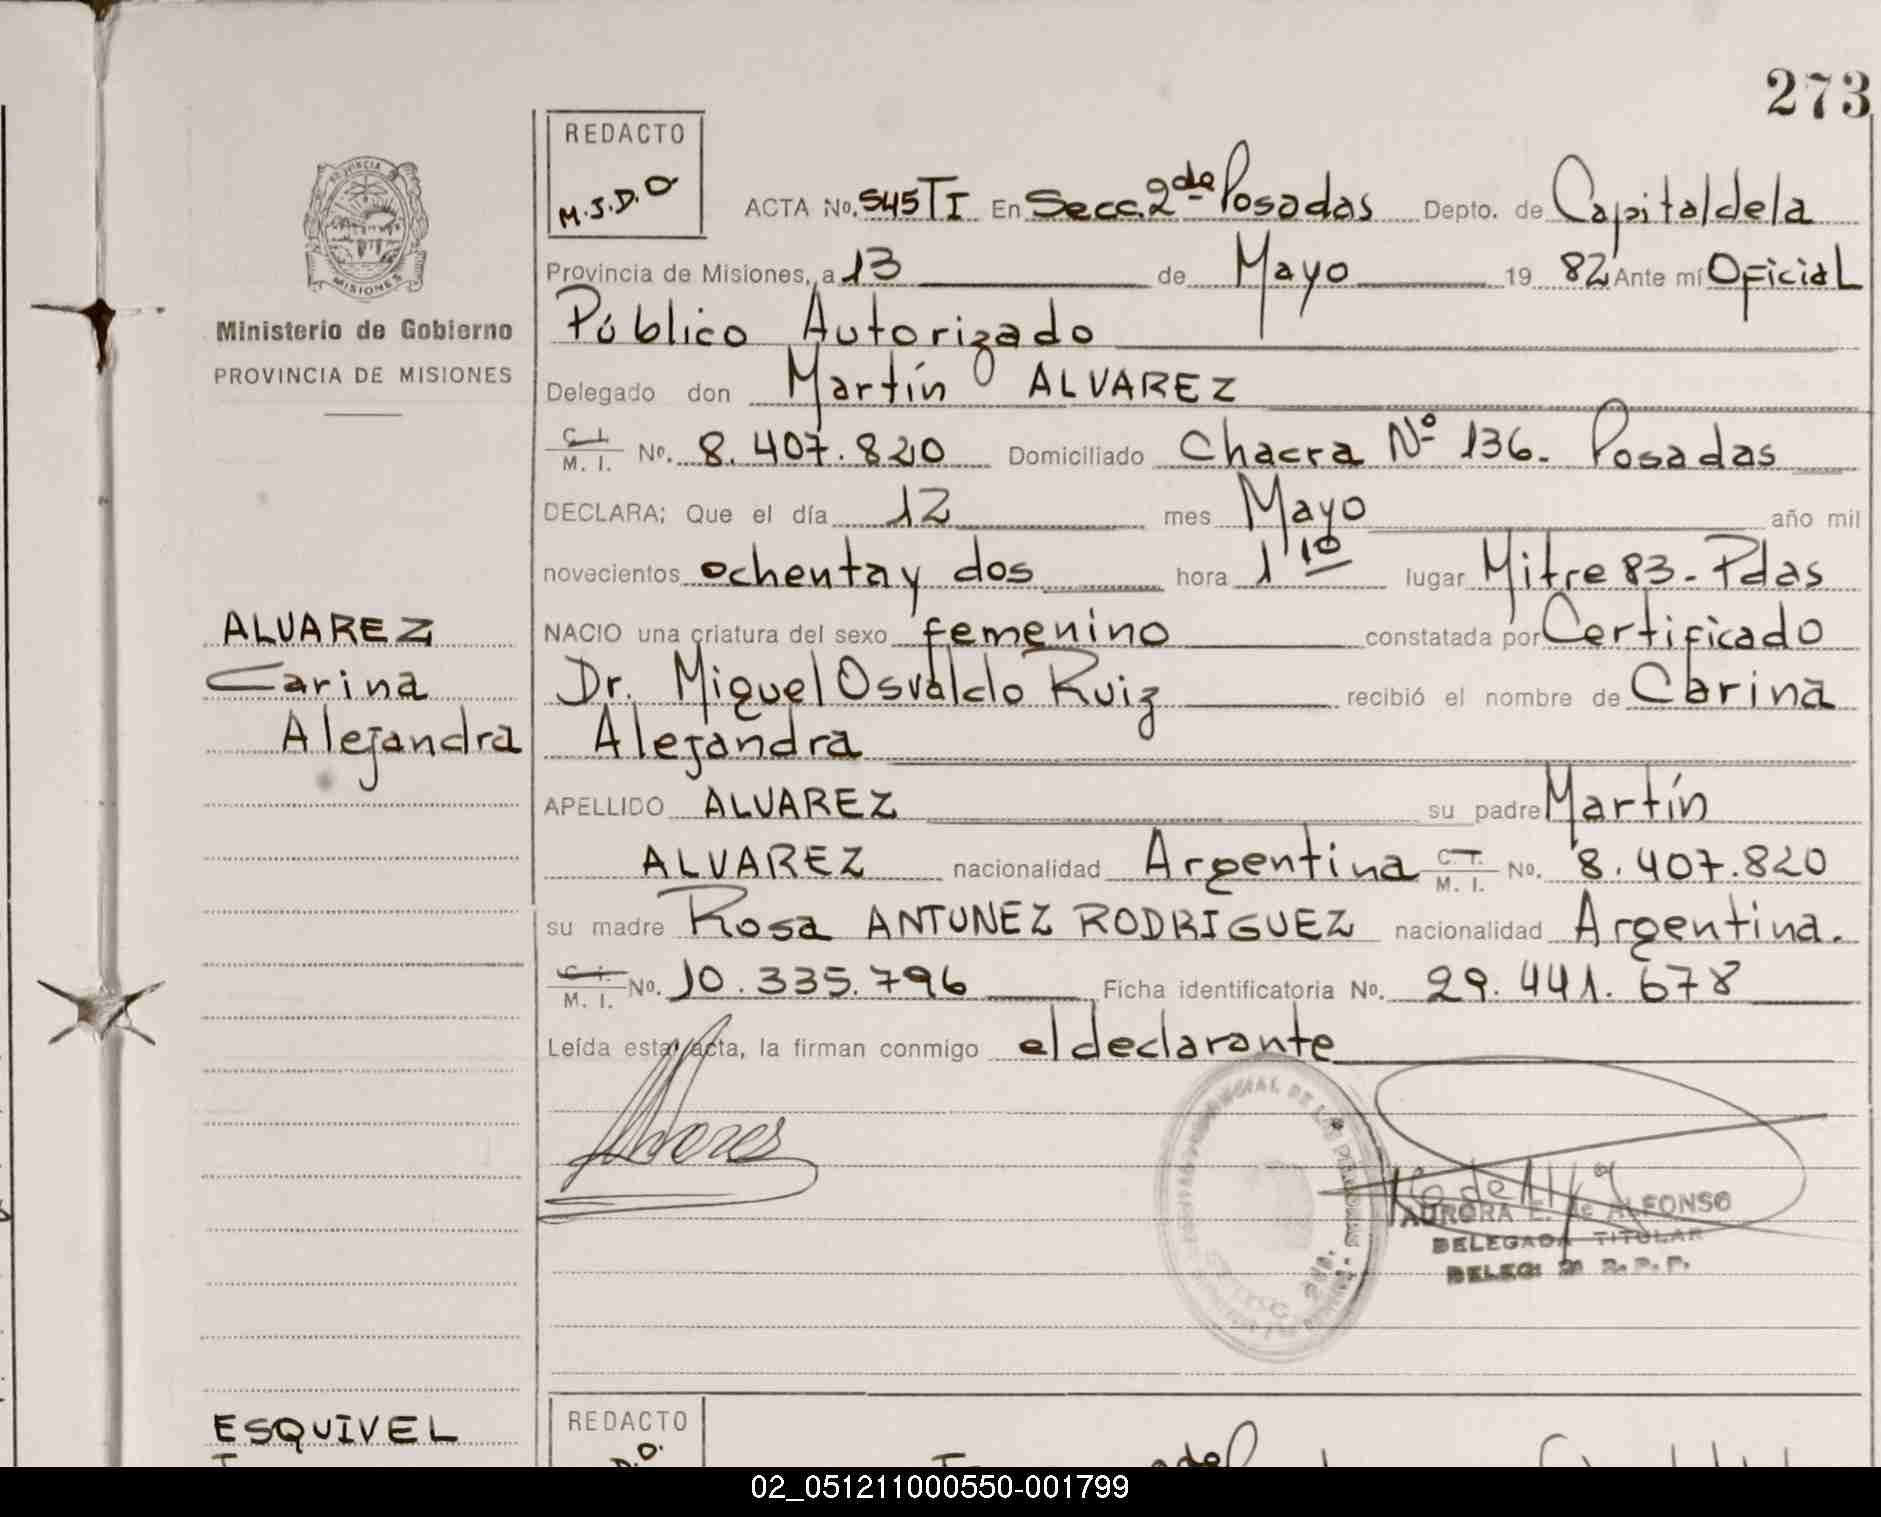 273
REDACTO
M.S.D.O
ACTA No. 545 TI En Secc. 2da Posadas Depto. de Capital de la
Provincia de Misiones, a 13 de Mayo 19 82 Ante mí Oficial
Público Autorizado
Delegado don Martín ALVAREZ
C. I.
M. I. No. 8.407.820 Domiciliado Chacra Nº 136. Posadas
DECLARA: Que el día 12 mes Mayo año mil
novecientos ochenta y dos hora 1 10 lugar Mitre 83 - Pdas
NACIO una criatura del sexo femenino constatada por Certificado
Dr. Miguel Osvaldo Ruiz recibió el nombre de Carina
Alejandra
APELLIDO ALVAREZ su padre Martín
ALVAREZ nacionalidad Argentina C. I.
M. I. No. 8.407.820
su madre Rosa ANTUNEZ RODRIGUEZ nacionalidad Argentina.
C. I.
M. I. No. 10.335.796 Ficha identificatoria No. 29.441.678
Leída esta acta, la firman conmigo el declarante
Alvarez
AURORA E. de ALFONSO
DELEGADA TITULAR
DELEG: 2a R.P.P.
MISIONES
Ministerio de Gobierno
PROVINCIA DE MISIONES
ALVAREZ
Carina
Alejandra
ESQUIVEL
REDACTO
02_051211000550-001799